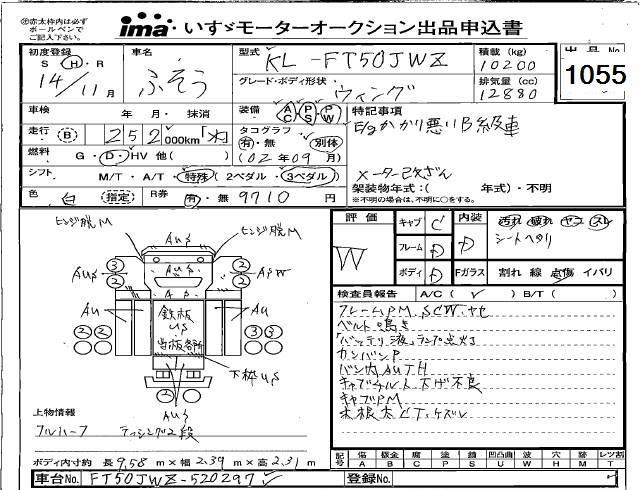 ㊟赤太枠内は必ず
ボールペンで
ご記入下さい。
ima いすゞモーターオークション出品申込書
初度登録 S・H・R 14/11月
車名 ふそう
型式 KL-FT50JWZ
積載(kg) 10200
出品No 1055
グレード・ボディ形状 ウィング
排気量(cc) 12880
車検 年 月・抹消
装備 AC PS PW
特記事項
E/gかかり悪い B級車
走行 (B) 252,000km
タコグラフ 有・無 別体
(02年09月)
燃料 G・D・HV 他( )
メーター改ざん
シフト M/T・A/T・特殊(2ペダル・3ペダル)
架装物年式:( 年式)・不明
※不明の場合は、不明に○をする。
色 白 (指定) R券 有・無 9710円
評価 W
キャブ C
フレーム D
ボディ D
内装 D
汚れ 破れ ヤコ スレ
シートヘタリ
Fガラス 割れ 線 点傷 イバリ
検査員報告 A/C( ✓ ) B/T( )
フレームPM.SCW.ヤセ
ベルト鳴き
「バッテリ液」ランプ点灯
カンバンP
バン内AUTH
キャブチルト下げ不良
キャブPM
ヒンジ脱M
ヒンジ脱M
AUS
AUS
AUS
ASW
AU
AU
鉄板
US
下枠US
AUS
上物情報
フルハーフ
2段
ボディ内寸約 長9.58m×幅2.39m×高2.31m
記号 傷A 板金B 腐C 塗P 錆S 凹凸曲U 波W 穴H 跡M レツ割T
車台No. FT50JWZ-520297
登録No.